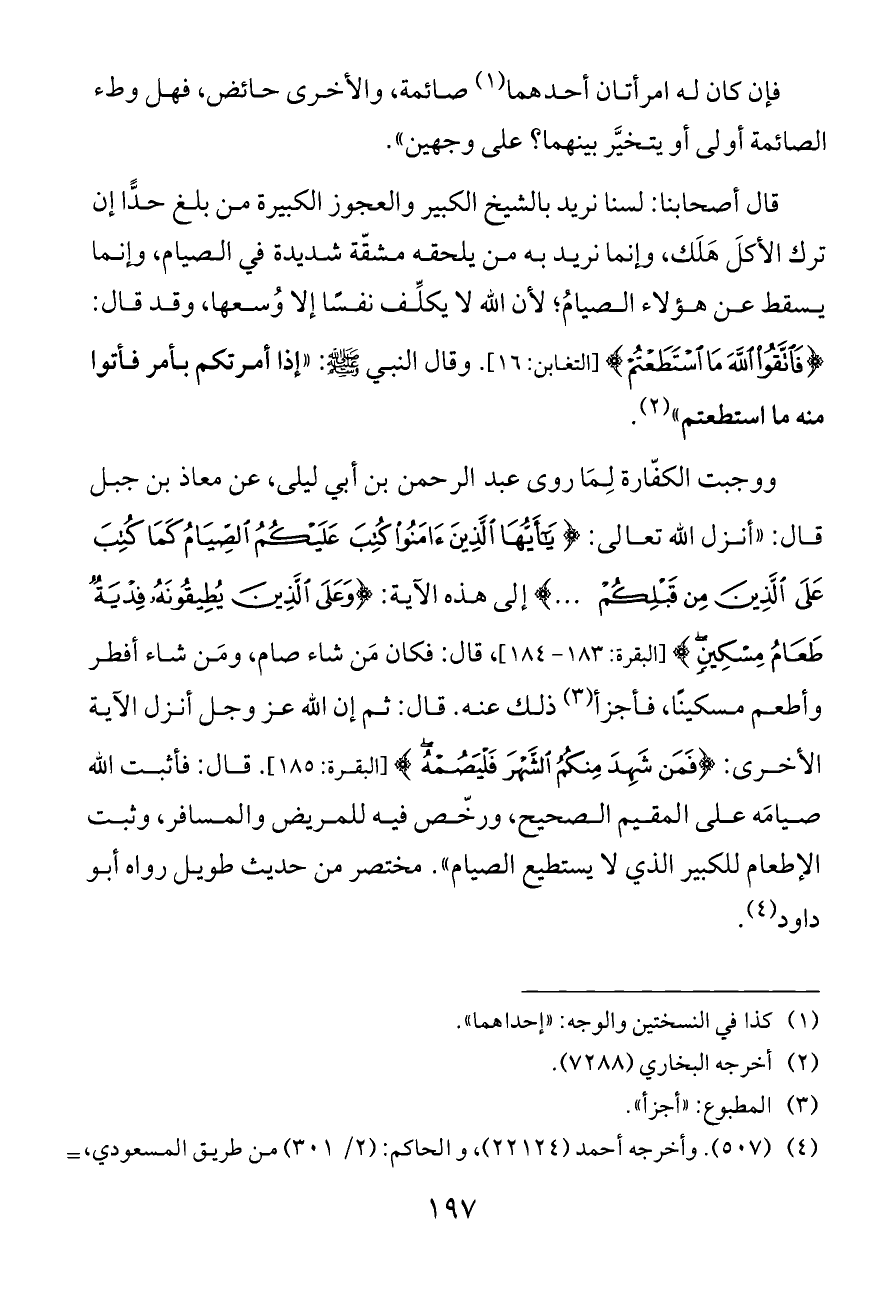 فإن كان له امرأتان أحدهما(١) صائمة، والأخرى حائض، فهل وطء
الصائمة أولى أو يتخيَّر بينهما؟ على وجهين».
قال أصحابنا: لسنا نريد بالشيخ الكبير والعجوز الكبيرة من بلغ حدًّا إن
ترك الأكلَ هَلَك، وإنما نريد به من يلحقه مشقّة شديدة في الصيام، وإنما
يسقط عن هؤلاء الصيامُ؛ لأن الله لا يكلِّف نفسًا إلا وُسعها، وقد قال:
﴿فَٱتَّقُوا۟ ٱللَّهَ مَا ٱسْتَطَعْتُمْ﴾ [التغابن: ١٦]. وقال النبي ﷺ: «إذا أمرتكم بأمر فأتوا
منه ما استطعتم»(٢).
ووجبت الكفّارة لِمَا روى عبد الرحمن بن أبي ليلى، عن معاذ بن جبل
قال: «أنزل الله تعالى: ﴿يَٰٓأَيُّهَا ٱلَّذِينَ ءَامَنُوا۟ كُتِبَ عَلَيْكُمُ ٱلصِّيَامُ كَمَا كُتِبَ
عَلَى ٱلَّذِينَ مِن قَبْلِكُمْ ...﴾ إلى هذه الآية: ﴿وَعَلَى ٱلَّذِينَ يُطِيقُونَهُۥ فِدْيَةٌ
طَعَامُ مِسْكِينٍۖ﴾ [البقرة: ١٨٣- ١٨٤]، قال: فكان مَن شاء صام، ومَن شاء أفطر
وأطعم مسكينًا، فأجزأ(٣) ذلك عنه. قال: ثم إن الله عز وجل أنزل الآية
الأخرى: ﴿فَمَن شَهِدَ مِنكُمُ ٱلشَّهْرَ فَلْيَصُمْهُۖ﴾ [البقرة: ١٨٥]. قال: فأثبت الله
صيامَه على المقيم الصحيح، ورخّص فيه للمريض والمسافر، وثبت
الإطعام للكبير الذي لا يستطيع الصيام». مختصر من حديث طويل رواه أبو
داود(٤).
(١) كذا في النسختين والوجه: «إحداهما».
(٢) أخرجه البخاري (٧٢٨٨).
(٣) المطبوع: «أجزأ».
(٤) (٥٠٧). وأخرجه أحمد (٢٢١٢٤)، و الحاكم: (٢/ ٣٠١) من طريق المسعودي، =
١٩٧